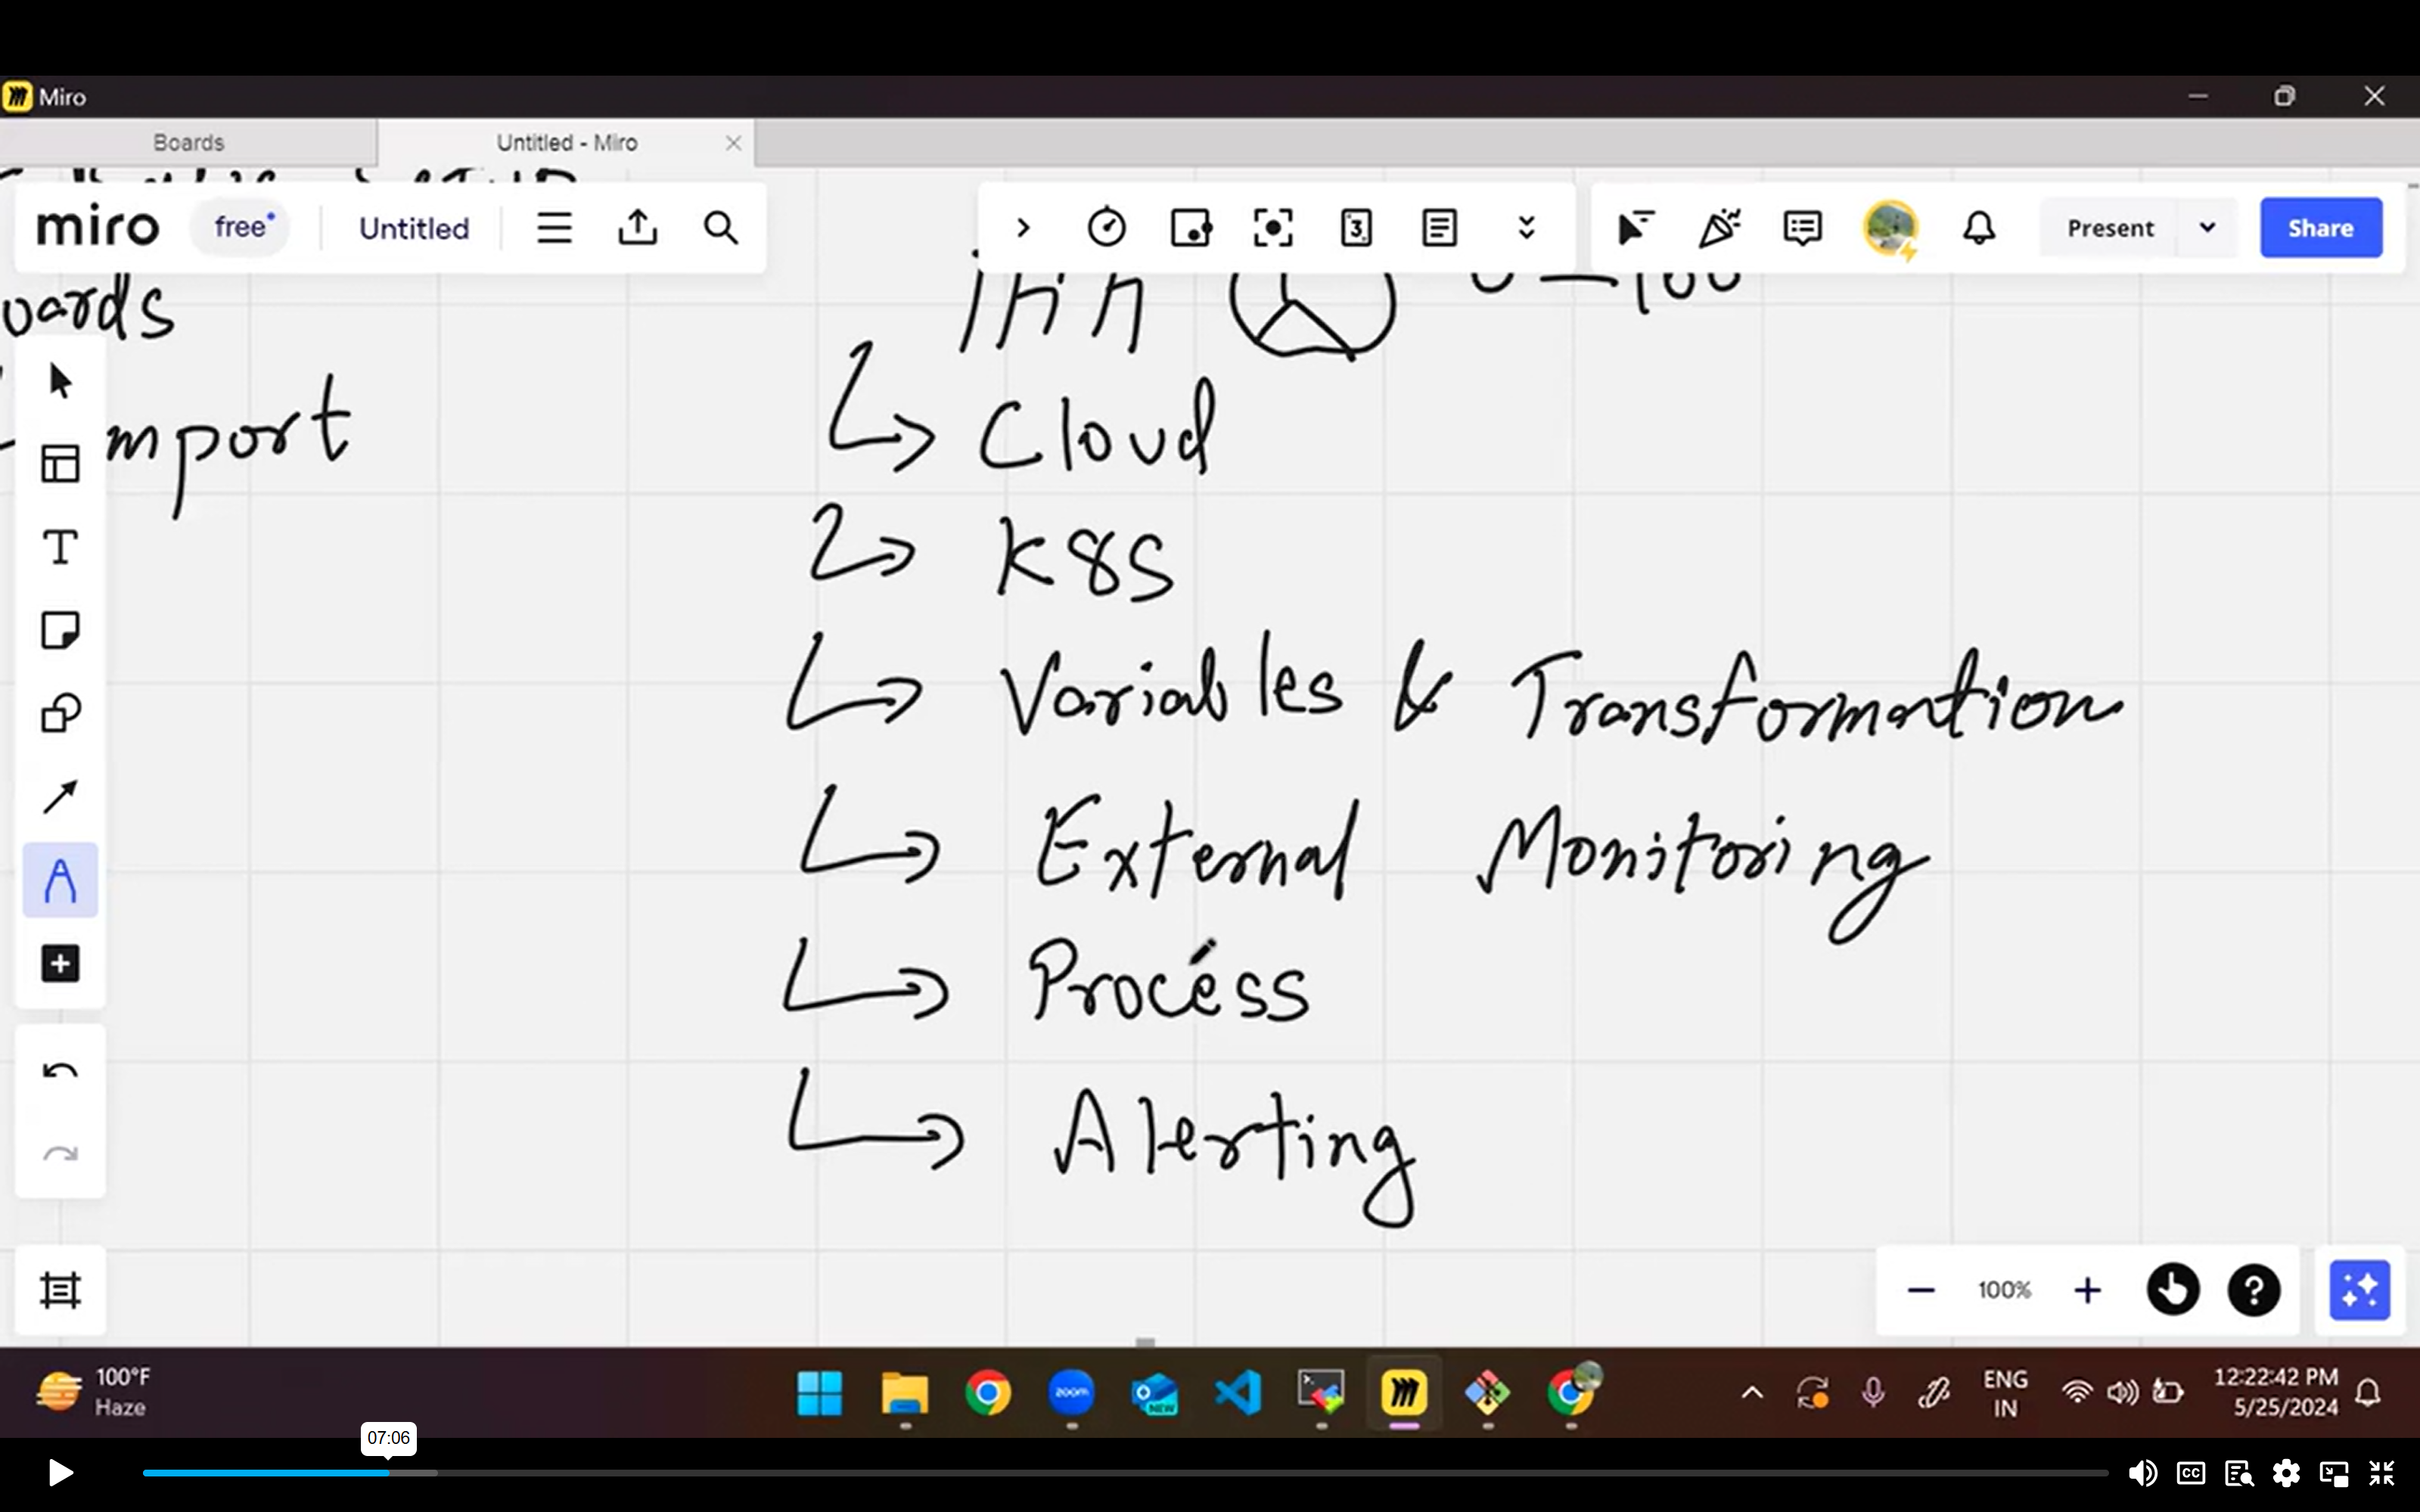 Miro
Boards
Untitled - Miro
miro
free
Untitled
3
Present
Share
oards
mport
0 — 100
Cloud
K8S
Variables & Transformation
External Monitoring
Process
Alerting
100%
100°F
Haze
zoom
NEW
ENG
IN
12:22:42 PM
5/25/2024
07:06
CC